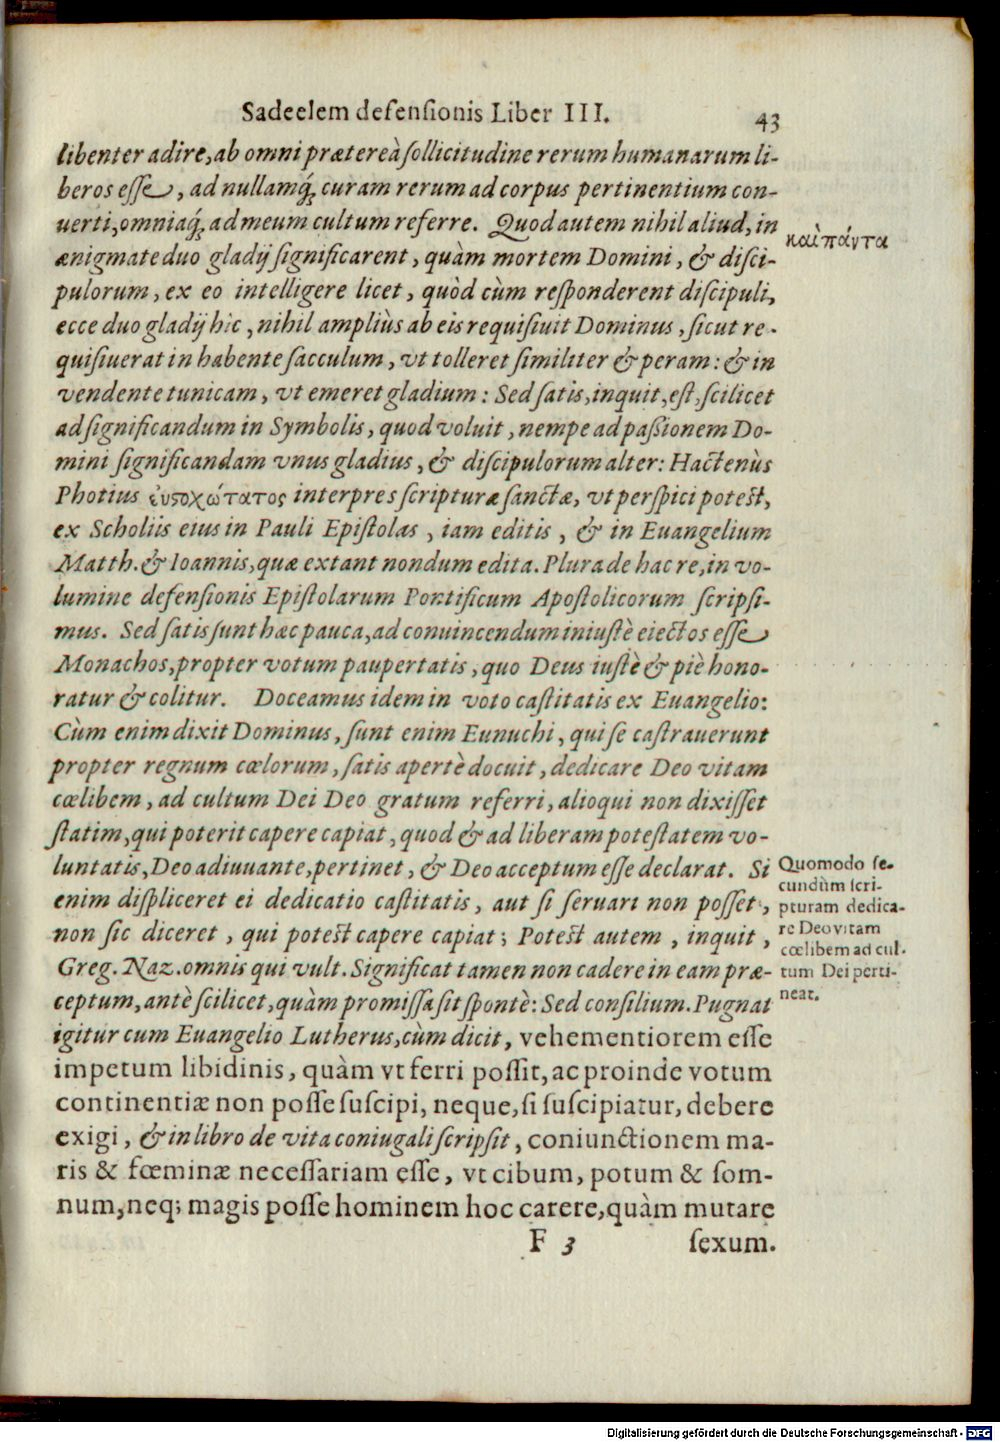 Sadeelem defensionis Liber III. 43
libenter adire, ab omni prætereà sollicitudine rerum humanarum li-
beros esse, ad nullamq́; curam rerum ad corpus pertinentium con-
uerti, omniaq́; ad meum cultum referre. Quod autem nihil aliud, in
καὶ πάντα
ænigmate duo gladij significarent, quàm mortem Domini, & disci-
pulorum, ex eo intelligere licet, quòd cùm responderent discipuli,
ecce duo gladij hìc, nihil ampliùs ab eis requisiuit Dominus, sicut re-
quisiuerat in habente sacculum, vt tolleret similiter & peram: & in
vendente tunicam, vt emeret gladium: Sed satis, inquit, est, scilicet
ad significandum in Symbolis, quod voluit, nempe ad passionem Do-
mini significandam vnus gladius, & discipulorum alter: Hactenùs
Photius interpres scripturæ sanctæ, vt perspici potest,
ex Scholiis eius in Pauli Epistolas, iam editis, & in Euangelium
Matth. & Ioannis, quæ extant nondum edita. Plura de hac re, in vo-
lumine defensionis Epistolarum Pontificum Apostolicorum scripsi-
mus. Sed satis sunt hæc pauca, ad conuincendum iniustè eiectos esse
Monachos, propter votum paupertatis, quo Deus iustè & piè hono-
ratur & colitur. Doceamus idem in voto castitatis ex Euangelio:
Cùm enim dixit Dominus, sunt enim Eunuchi, qui se castrauerunt
propter regnum cœlorum, satis apertè docuit, dedicare Deo vitam
cœlibem, ad cultum Dei Deo gratum referri, alioqui non dixisset
statim, qui poterit capere capiat, quod & ad liberam potestatem vo-
luntatis, Deo adiuuante, pertinet, & Deo acceptum esse declarat. Si
enim displiceret ei dedicatio castitatis, aut si seruari non posset,
non sic diceret, qui potest capere capiat; Potest autem, inquit,
Greg. Naz. omnis qui vult. Significat tamen non cadere in eam præ-
ceptum, antè scilicet, quàm promissa sit spontè: Sed consilium. Pugnat
igitur cum Euangelio Lutherus, cùm dicit, vehementiorem esse
impetum libidinis, quàm vt ferri possit, ac proinde votum
continentiæ non posse suscipi, neque, si suscipiatur, debere
exigi, & in libro de vita coniugali scripsit, coniunctionem ma-
ris & fœminæ necessariam esse, vt cibum, potum & som-
num, neq; magis posse hominem hoc carere, quàm mutare
F 3 sexum.
Quomodo se-
cundùm scri-
pturam dedica-
re Deo vitam
cœlibem ad cul-
tum Dei perti-
neat.
Digitalisierung gefördert durch die Deutsche Forschungsgemeinschaft - DFG